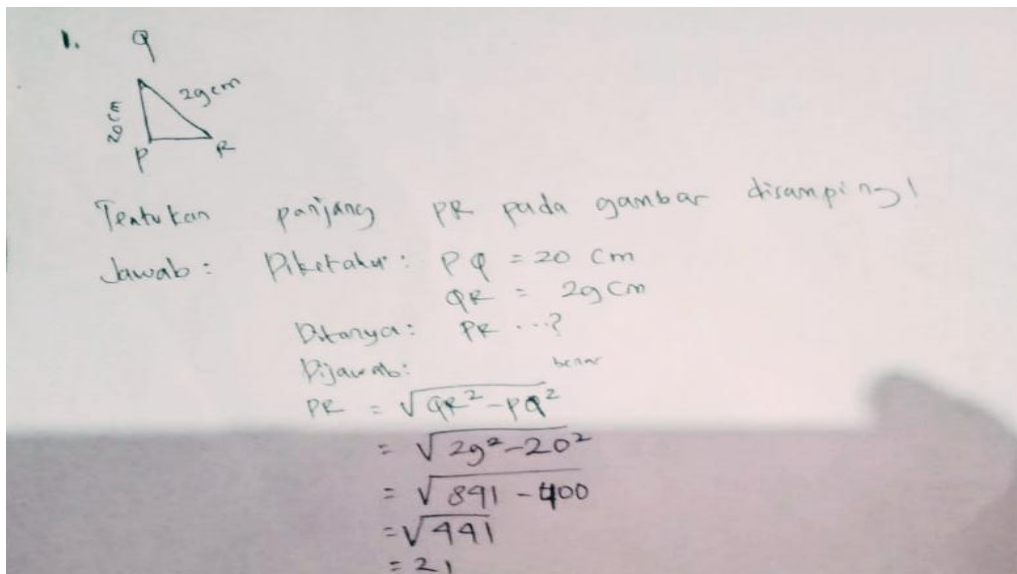 1.
Q
29cm
20cm
P
R
Tentukan panjang PR pada gambar disamping!
Jawab : Diketahui : PQ = 20 cm
QR = 29 cm
Ditanya : PR ...?
Dijawab :
benar
PR = √QR²-PQ²
= √29²-20²
= √891 - 400
= √441
= 21